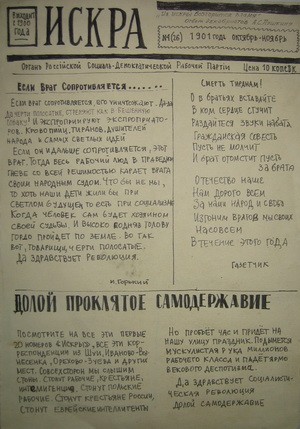 Выходит
с 1900
года
ИСКРА
№1(26) 1901 года октябрь-ноябрь
Орган Российской Социал-Демократической Рабочей Партии Цена 10 копеек
Если враг сопротивляется......
Если враг сопротивляется, его уничтожают.
и экспроприируют экспроприато-
ров. Кровопийц, тиранов, душителей
народа и самых светлых идей
Если он и дальше сопротивляется, это
враг. Тогда весь рабочий люд в праведном
гневе со всей решимостью карает врага
своим народным судом. Что бы не мы,
то хоть наши дети жили при
светлом будущем, то есть при социализме
когда человек сам будет хозяином
своей судьбы. И высоко подняв голову
гордо пройдет по земле. Во так
вот, товарищи, черти полосатые.
Да здравствует революция.
М. Горький
Смерть тиранам!
О братья вставайте
В ком сердце стучит
Раздайся звуки набата,
Гражданская совесть
Пусть не молчит
И враг отомстит пусть
за брата
Отечество наше
Нам дорого всем
За наш народ и свобо
Изгоним врагов мы своих
Насовсем
В течение этого года
Газетчик
ДОЛОЙ ПРОКЛЯТОЕ САМОДЕРЖАВИЕ
Посмотрите на все эти первые
20 номеров «Искры», все эти кор-
респонденции из Шуи, Иваново-Воз-
несенска, Орехово-Зуева и других
мест. Со всех сторон мы слышим
стоны. Стонут рабочие, крестьяне,
интеллигенция. Стонут польские
рабочие. Стонут крестьяне России,
Стонут еврейские интеллигенты
Но пробьет час и придет на
нашу улицу праздник. Поднимется
мускулистая рука миллионов
рабочего класса и падет ярмо
векового деспотизма.
Да здравствует социалисти-
ческая революция
Долой самодержавие